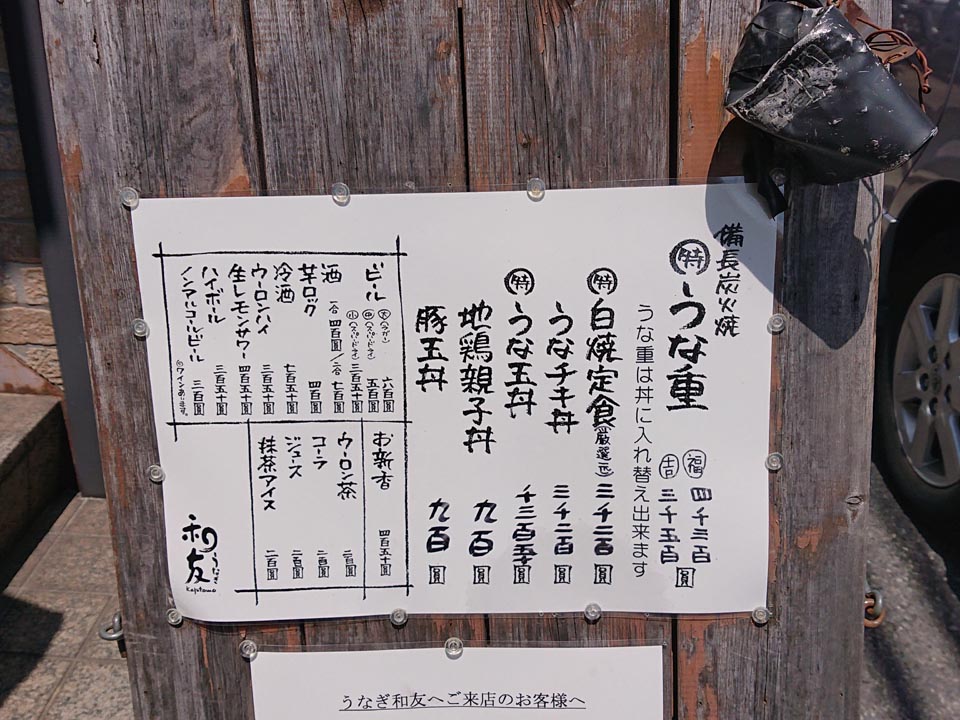 備長炭火焼
特 うな重
福 四千三百
吉 三千五百 圓
うな重は丼に入れ替え出来ます
特 白焼定食 三千二百 圓
うなチキ丼 三千二百 圓
特 うな玉丼 千三百五十 圓
地鶏親子丼 九百 圓
豚玉丼 九百 圓
ビール
大 六百圓
中 五百圓
小 三百五十圓
酒 一合 四百圓/二合 七百圓
芋ロック 四百圓
冷酒 七百五十圓
ウーロンハイ 三百五十圓
生レモンサワー 四百五十圓
ハイボール 三百五十圓
ノンアルコールビール 三百圓
ワインあります。
お新香 四百五十圓
ウーロン茶 二百圓
コーラ 二百圓
ジュース 二百圓
抹茶アイス 二百圓
うなぎ
和友
Kazutomo
うなぎ和友へご来店のお客様へ